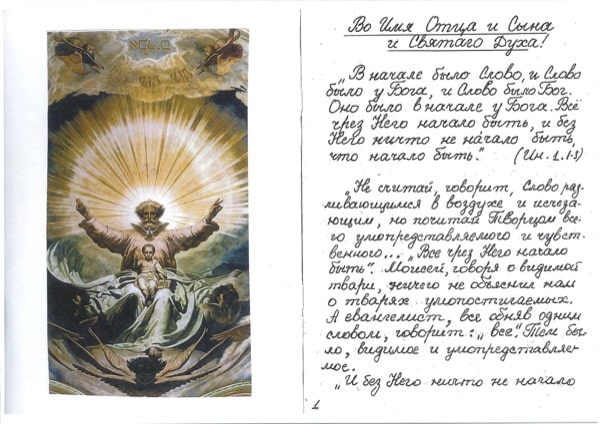 Во Имя Отца и Сына
и Святаго Духа!
„В начале было Слово, и Слово
было у Бога, и Слово было Бог.
Оно было в начале у Бога. Всё
чрез Него начало быть, и без
Него ничто не на́чало быть,
что начало быть." (Ин. 1. 1-3)
„Не считай, говорит, Слово раз-
ливающимся в воздухе и исчеза-
ющим, но почитай Творцом все-
го умопредставляемого и чувст-
венного... „Все чрез Него начало
быть". Моисей, говоря о видимой
твари, ничего не объяснил нам
о тварях умопостигаемых.
А евангелист, все обняв одним
словом, говорит: „все". Тем бы-
ло, видимое и умопредставляе-
мое.
„И без Него ничто не начало
1